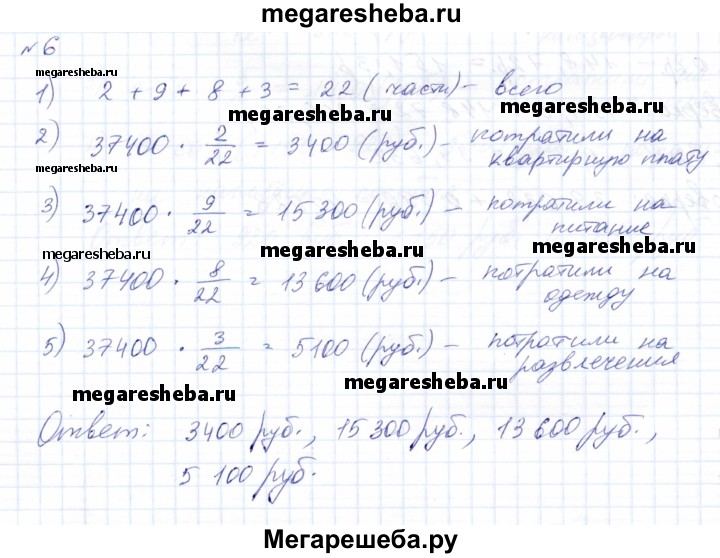 megaresheba.ru
№ 6
megaresheba.ru
1) 2 + 9 + 8 + 3 = 22 (части) - всего
megaresheba.ru
2) 37400 · 2/22 = 3400 (руб.) - потратили на
квартирную плату
megaresheba.ru
3) 37400 · 9/22 = 15 300 (руб.) - потратили на
питание
megaresheba.ru
megaresheba.ru
4) 37400 · 8/22 = 13 600 (руб.) - потратили на
одежду
5) 37400 · 3/22 = 5100 (руб.) - потратили на
развлечения
megaresheba.ru
megaresheba.ru
Ответ: 3400 руб., 15 300 руб., 13 600 руб.,
5 100 руб.
Мегарешеба.ру